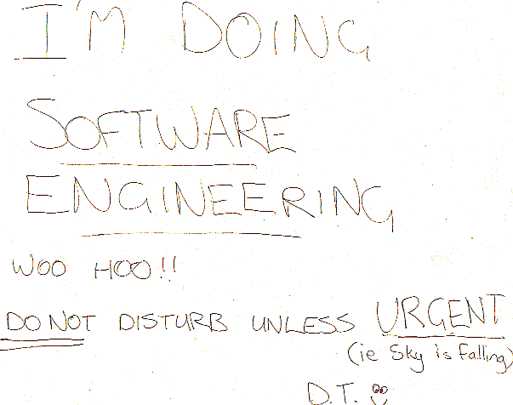 I'M DOING
SOFTWARE
ENGINEERING
WOO HOO!!
DO NOT DISTURB UNLESS URGENT
(ie Sky is falling)
D.T.